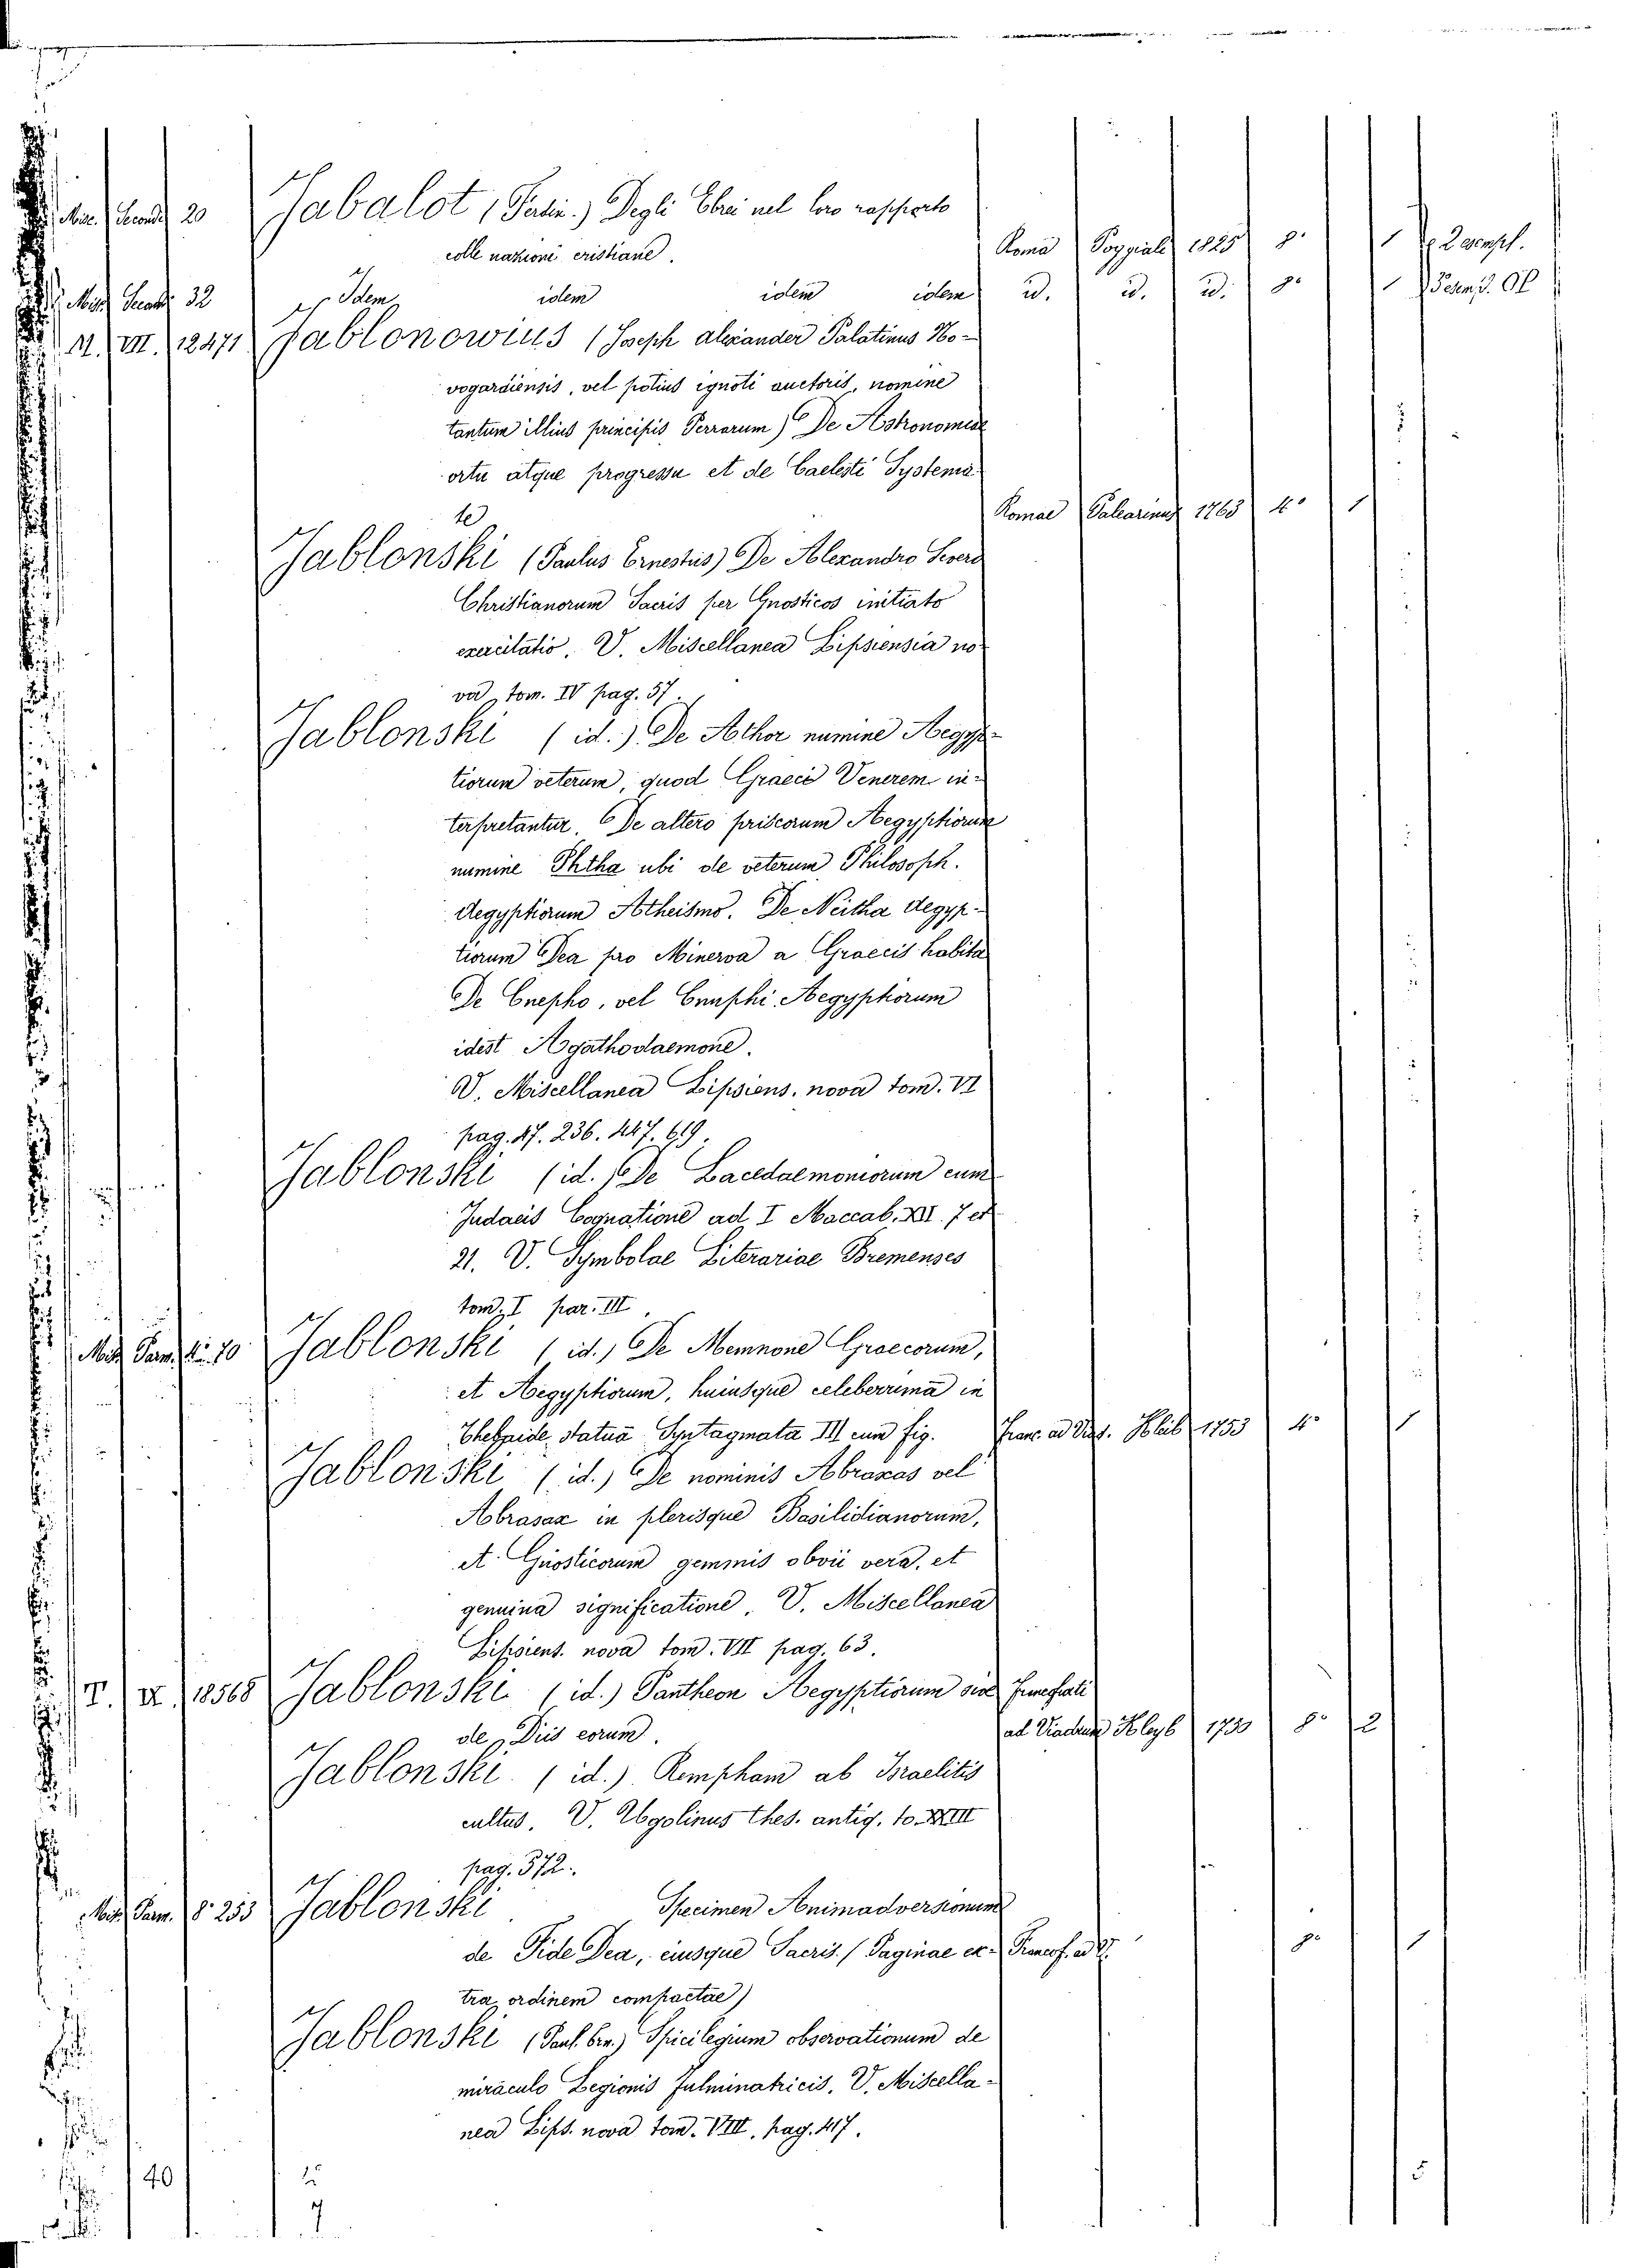 Misc. Second. 20 Jabalot (Ferdin.) Degli Ebrei nel loro rapporto
colle nazioni cristiane. Roma Poggioli 1825 8.° 1
Misc. Second. 32 Idem idem idem idem id. id. id. 8.° 1
M. VII. 12471 Jablonowius (Joseph Alexander Palatinus No-
vogardiensis, vel potius ignoti auctoris, nomine
tantum illius principis Terrarum) De Astronomiae
ortu atque progressu et de Caelesti Systema-
te Romae Palearinus 1763 4.° 1
Jablonski (Paulus Ernestus) De Alexandro Severo
Christianorum Sacris per Gnosticos initiato
exercitatio. V. Miscellanea Lipsiensia no-
va, tom. IV pag. 57.
Jablonski (id.) De Athor numine Aegyp-
tiorum veterum, quod Graeci Venerem in-
terpretantur. De altero priscorum Aegyptiorum
numine Phtha ubi de veterum Philosoph.
Aegyptiorum Atheismo. De Neitha Aegyp-
tiorum Dea pro Minerva a Graecis habita
De Cnepho, vel Cnuphi Aegyptiorum
idest Agathodaemone.
V. Miscellanea Lipsiens. nova tom. VI
pag. 47. 236. 447. 619.
Jablonski (id.) De Lacedaemoniorum cum
Judaeis Cognatione ad I Maccab. XII. 7 et
21. V. Symbolae Literariae Bremenses
tom. I par. III.
Misc. Parm. 4.° 10 Jablonski (id.) De Memnone Graecorum,
et Aegyptiorum, huiusque celeberrima in
Thebaide statua Syntagmata III cum fig. Franc. ad Viad. Kleib 1753 4.° 1
Jablonski (id.) De nominis Abraxas vel
Abrasax in plerisque Basilidianorum,
et Gnosticorum gemmis obvii vera, et
genuina significatione. V. Miscellanea
Lipsiens. nova tom. VII pag. 63.
T. IX. 18568 Jablonski (id.) Pantheon Aegyptiorum sive
de Diis eorum. ad Viadrum Kleyb 1750 8.° 2
Jablonski (id.) Rempham ab Israelitis
cultus. V. Ugolinus thes. antiq. to. XXIII
pag. 572.
Misc. Parm. 8.° 253 Jablonski Specimen Animadversionum
de Fide Dea, eiusque Sacris. (Paginae ex- Francof. ad V. 8.° 1
tra ordinem compactae)
Jablonski (Paul. Ern.) Spicilegium observationum de
miraculo Legionis fulminatricis. V. Miscella-
nea Lips. nova tom. VIII, pag. 417.
40 5
7